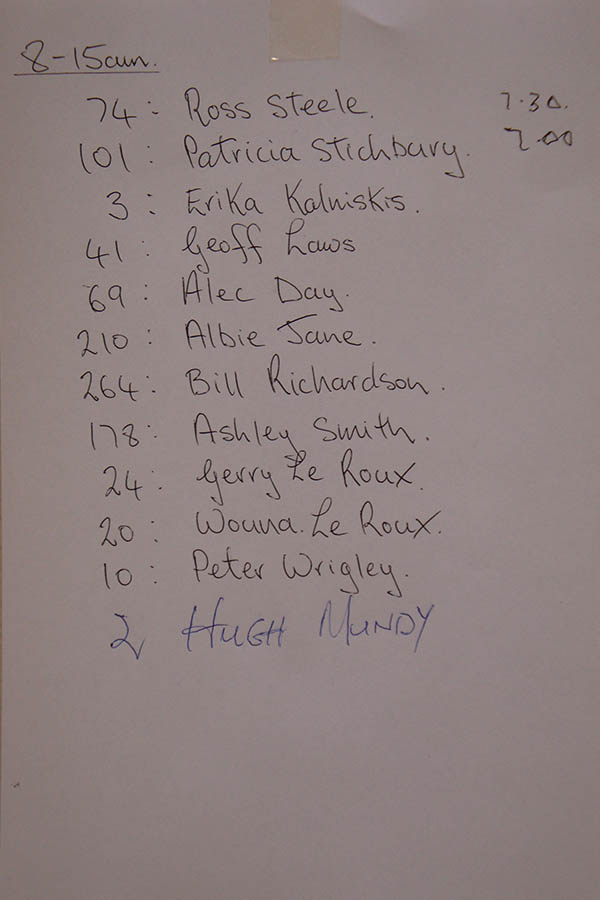 8-15am.
74: Ross Steele. 7.30.
101: Patricia Stichbury. 7.00
3: Erika Kalniskis.
41: Geoff Laws
69: Alec Day.
210: Albie Jane.
264: Bill Richardson.
178: Ashley Smith.
24: Gerry Le Roux.
20: Wouna. Le Roux.
10: Peter Wrigley.
2 HUGH MUNDY